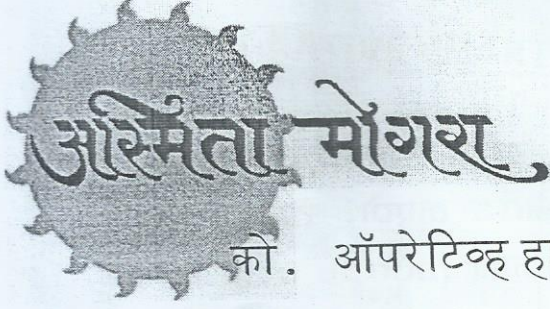 अस्मिता मोगरा
को. ऑपरेटिव्ह ह